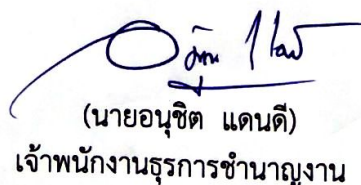 (นายอนุชิต แดนดี)
เจ้าพนักงานธุรการชำนาญงาน